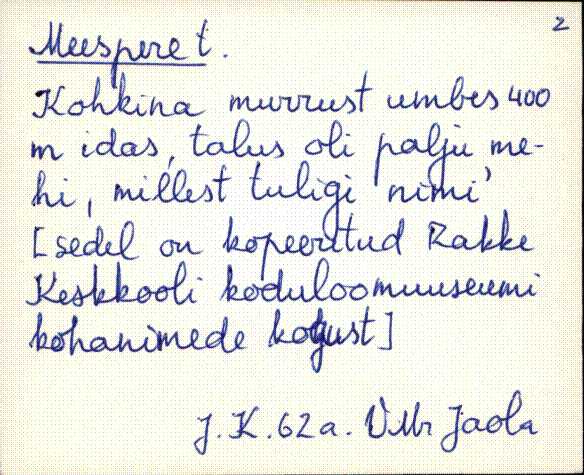 2
Meespere t.
Kohkina murrust umbes 400
m idas, talus oli palju me-
hi, millest tuligi nimi
[sedel on kopeeritud Rakke
Keskkooli koduloomuuseumi
kohanimede kogust]
J.K. 62 a. VMr Jaola